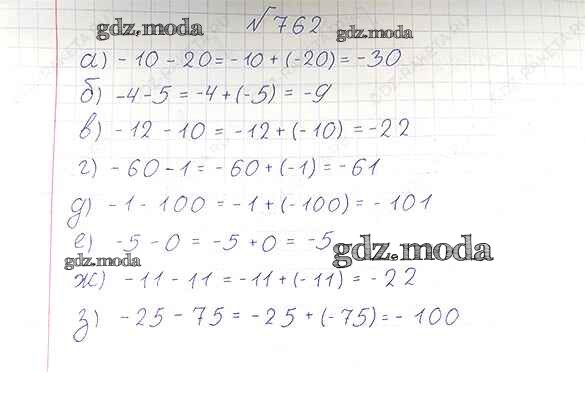 gdz.moda №762 gdz.moda
а) -10-20=-10+(-20)=-30
б) -4-5=-4+(-5)=-9
в) -12-10=-12+(-10)=-22
г) -60-1=-60+(-1)=-61
д) -1-100=-1+(-100)=-101
е) -5-0=-5+0=-5
gdz.moda gdz.moda
ж) -11-11=-11+(-11)=-22
з) -25-75=-25+(-75)=-100